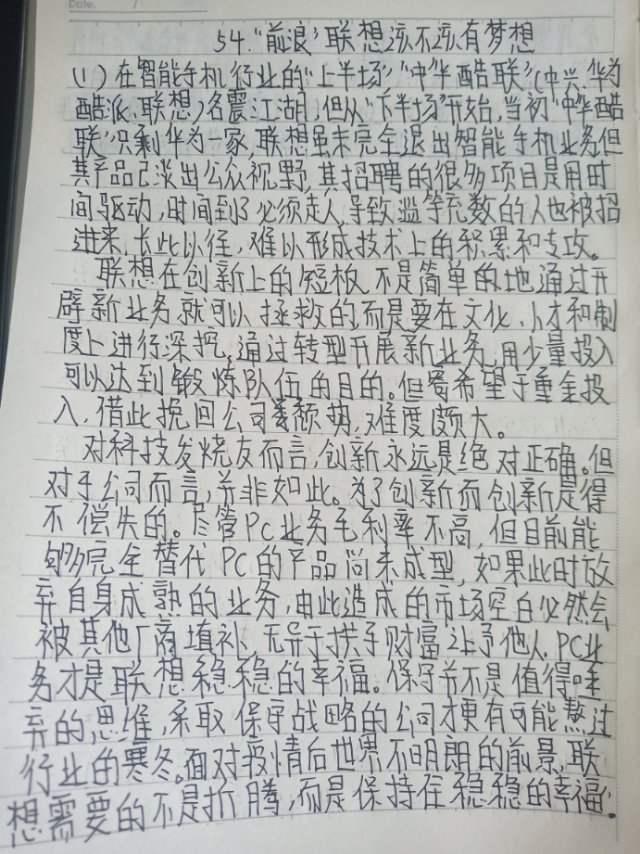 Date. /
54.“前浪”联想该不该有梦想
(1)在智能手机行业的“上半场”“中华酷联”(中兴、华为
酷派、联想)名震江湖,但从“下半场”开始,当初“中华酷
联”只剩华为一家,联想虽未完全退出智能手机业务但
其产品已淡出公众视野,其招聘的很多项目是用时
间驱动,时间到了必须走人,导致滥竽充数的人也被招
进来,长此以往,难以形成技术上的积累和专攻。
联想在创新上的短板,不是简单的地通过开
辟新业务就可以拯救的,而是要在文化、人才和制
度上进行深挖。通过转型开展新业务,用少量投入
可以达到锻炼队伍的目的。但希望于重金投
入,借此挽回公司颓势,难度颇大。
对科技发烧友而言,创新永远是绝对正确。但
对于公司而言,并非如此。为了创新而创新是得
不偿失的。尽管PC业务毛利率不高,但目前能
够完全替代PC的产品尚未成型,如果此时放
弃自身成熟的业务,由此造成的市场空白必然会
被其他厂商填补,无异于拱手财富让予他人,PC业
务才是联想稳稳的幸福。保守并不是值得唾
弃的思维,采取保守战略的公司才更有可能熬过
行业的寒冬。面对疫情后世界不明朗的前景,联
想需要的不是折腾,而是保持住稳稳的幸福.